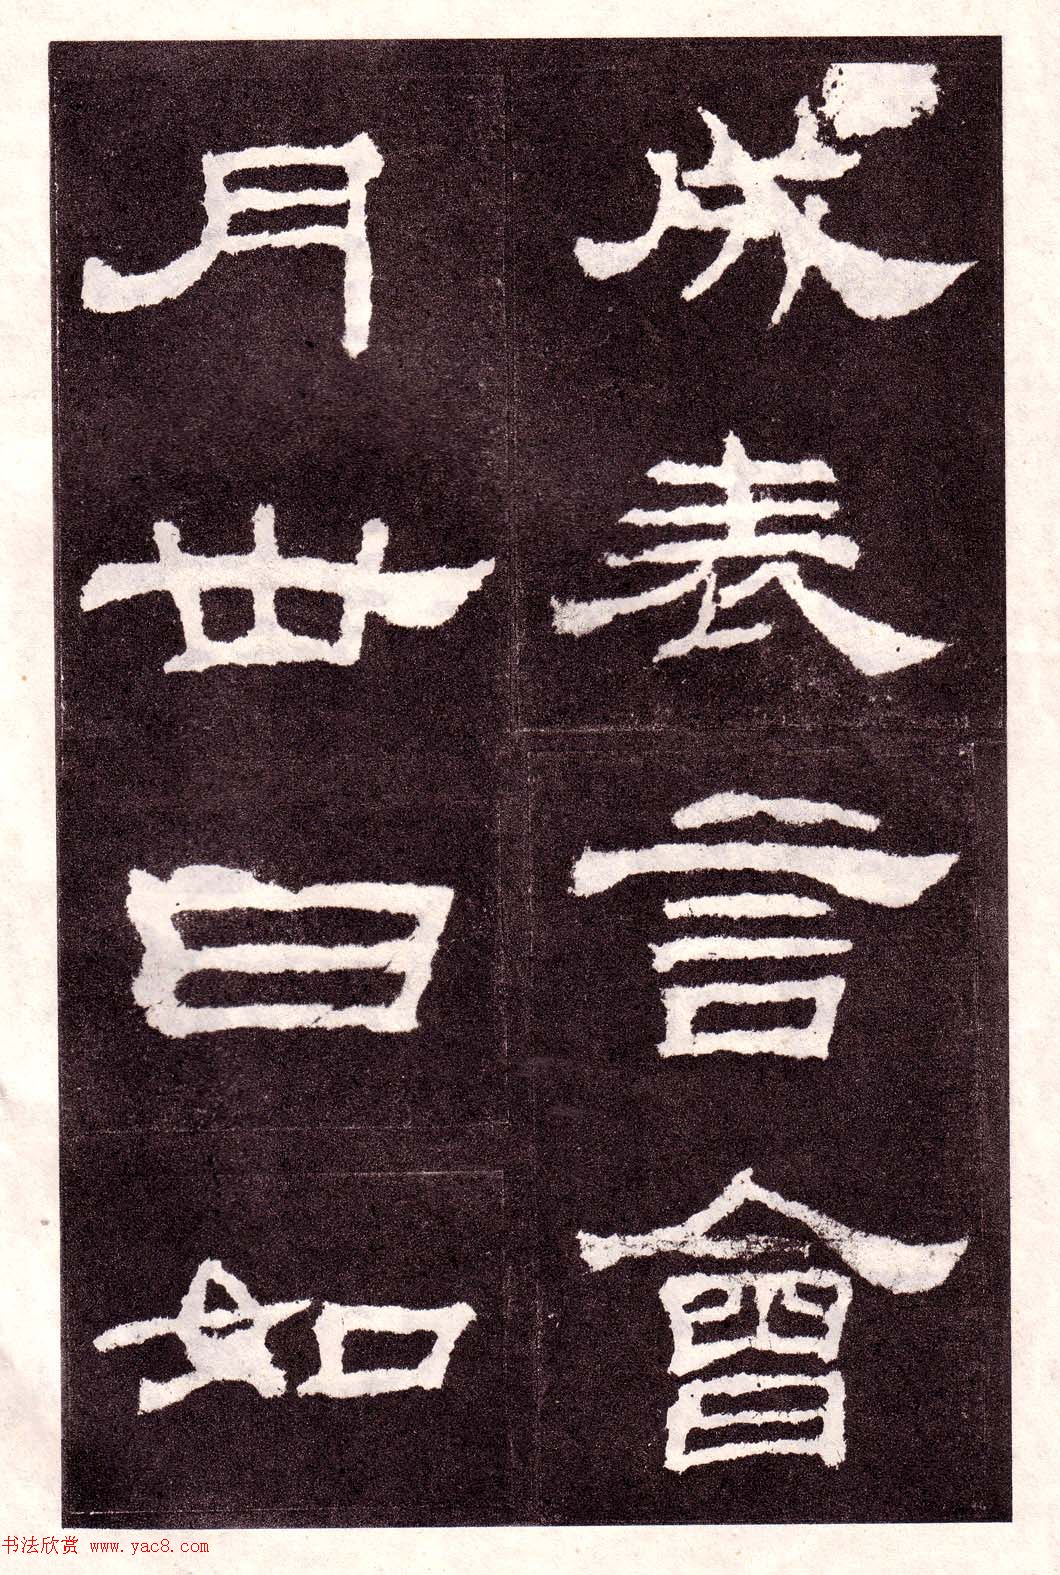 成表言會
月丗日如
书法欣赏 www.yac8.com